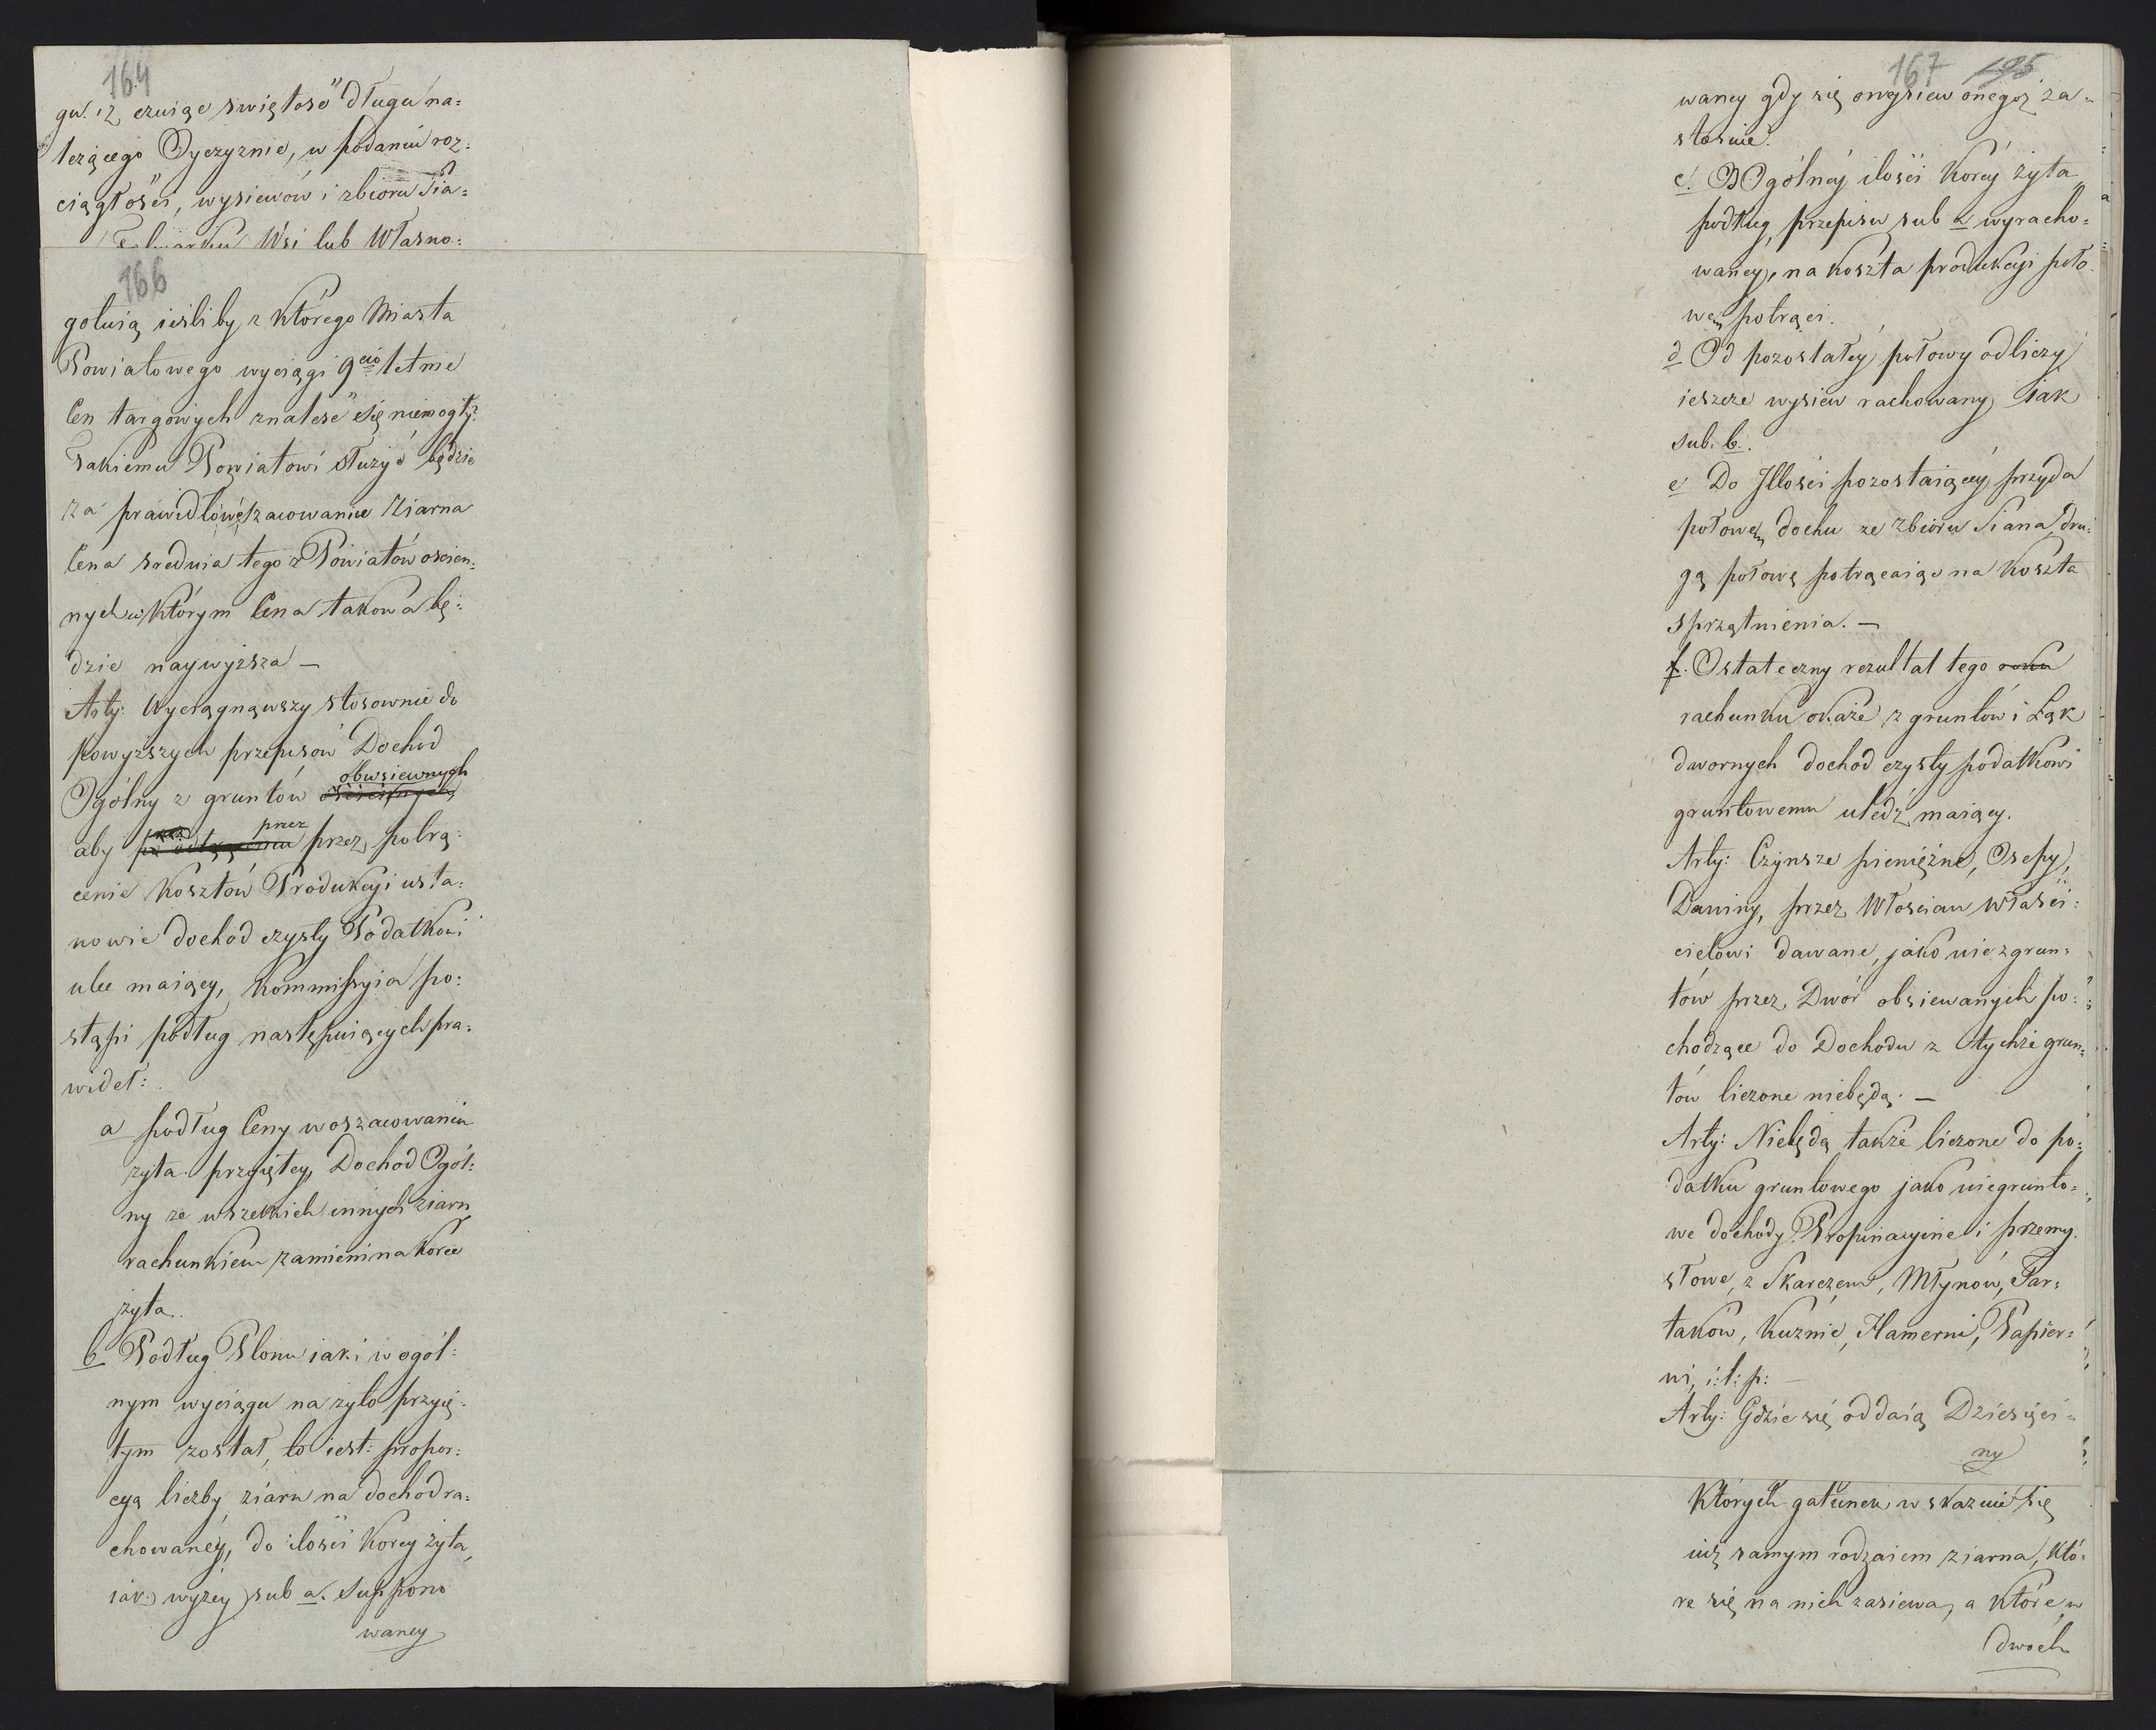 164
gu. iż czuiąc swiętość długu na=
leżącego Oyczyznie, w podaniu roz=
ciągłości, wysiewów i zbioru Sia=
Folwarku Wsi lub Własno=
166
gotuią iesliby z którego Miasta
Powiatowego wyciągi 9cio letnie
Cen targowych znaleść się niemogły?
Takiemu Powiatowi służyć będzie
za prawidło w oszacowaniu Ziarna
Cena srednia tego z Powiatów oscien=
nych w którym Cena takowa bę=
dzie naywyższa —
Arty: Wyciągnąwszy stosownie do
powyższych przepisów Dochod
obwsiewnych
Ogólny z gruntów
przez
aby przez potrą=
cenie Kosztów Produkcyi usta=
nowić dochod czysty Podatkowi
uledz maiący, Kommissyia po=
stąpi podług następuiących pra=
wideł:
a podług Ceny w oszacowaniu
żyta przyiętey, Dochod Ogól=
ny ze wszelkich innych ziarn
rachunkiem zamieni na Korce
żyta.
b Podług Plonu iaki w ogól=
nym wyciągu na żyto przyię=
tym został, to iest: propor=
cyą liczby ziarn na dochod ra=
chowaney, do ilości Korcy żyta,
iak wyżey sub a. suppono
waney
167 195
waney gdy się onwysiew onegoż za=
stosuie.
c. Ogólney ilości Korcy żyta
podług przepisu sub a wyracho=
waney, na koszta produkcyi poło=
wę potrąci.
d Od pozostałey połowy odliczy
ieszcze wysiew rachowany iak
sub. b.
e Do Illości pozostaiącey przyda
połowę dochu ze zbioru Siana, dru=
gą połowę potrącaiąc na Koszta
sprzątnienia. —
f. Ostateczny rezultat tego roku
rachunku okaże z gruntów i Łąk
dwornych dochod czysty podatkowi
gruntowemu uledź maiący.
Arty: Czynsze pieniężne, Osepy,
Daniny, przez Włoscian właści=
cielowi dawane, jako nie z grun=
tów przez Dwór obsiewanych po=
chodzące do Dochodu z tychże grun=
tów liczone niebędą. —
Arty: Niebędą także liczone do po=
datku gruntowego jako niegrunto=
we dochody: Propinacyine i przemy=
słowe, z Karczem, Młynów, Tar=
taków, Kuznic, Hamerni, Papier=
ni, i: t: p: —
Arty: Gdzie się oddaią Dziesięci=
ny
Których gatunek wskazuie się
iuż samym rodzaiem ziarna, Któ=
re się na nich zasiewa, a Które w
dwoch